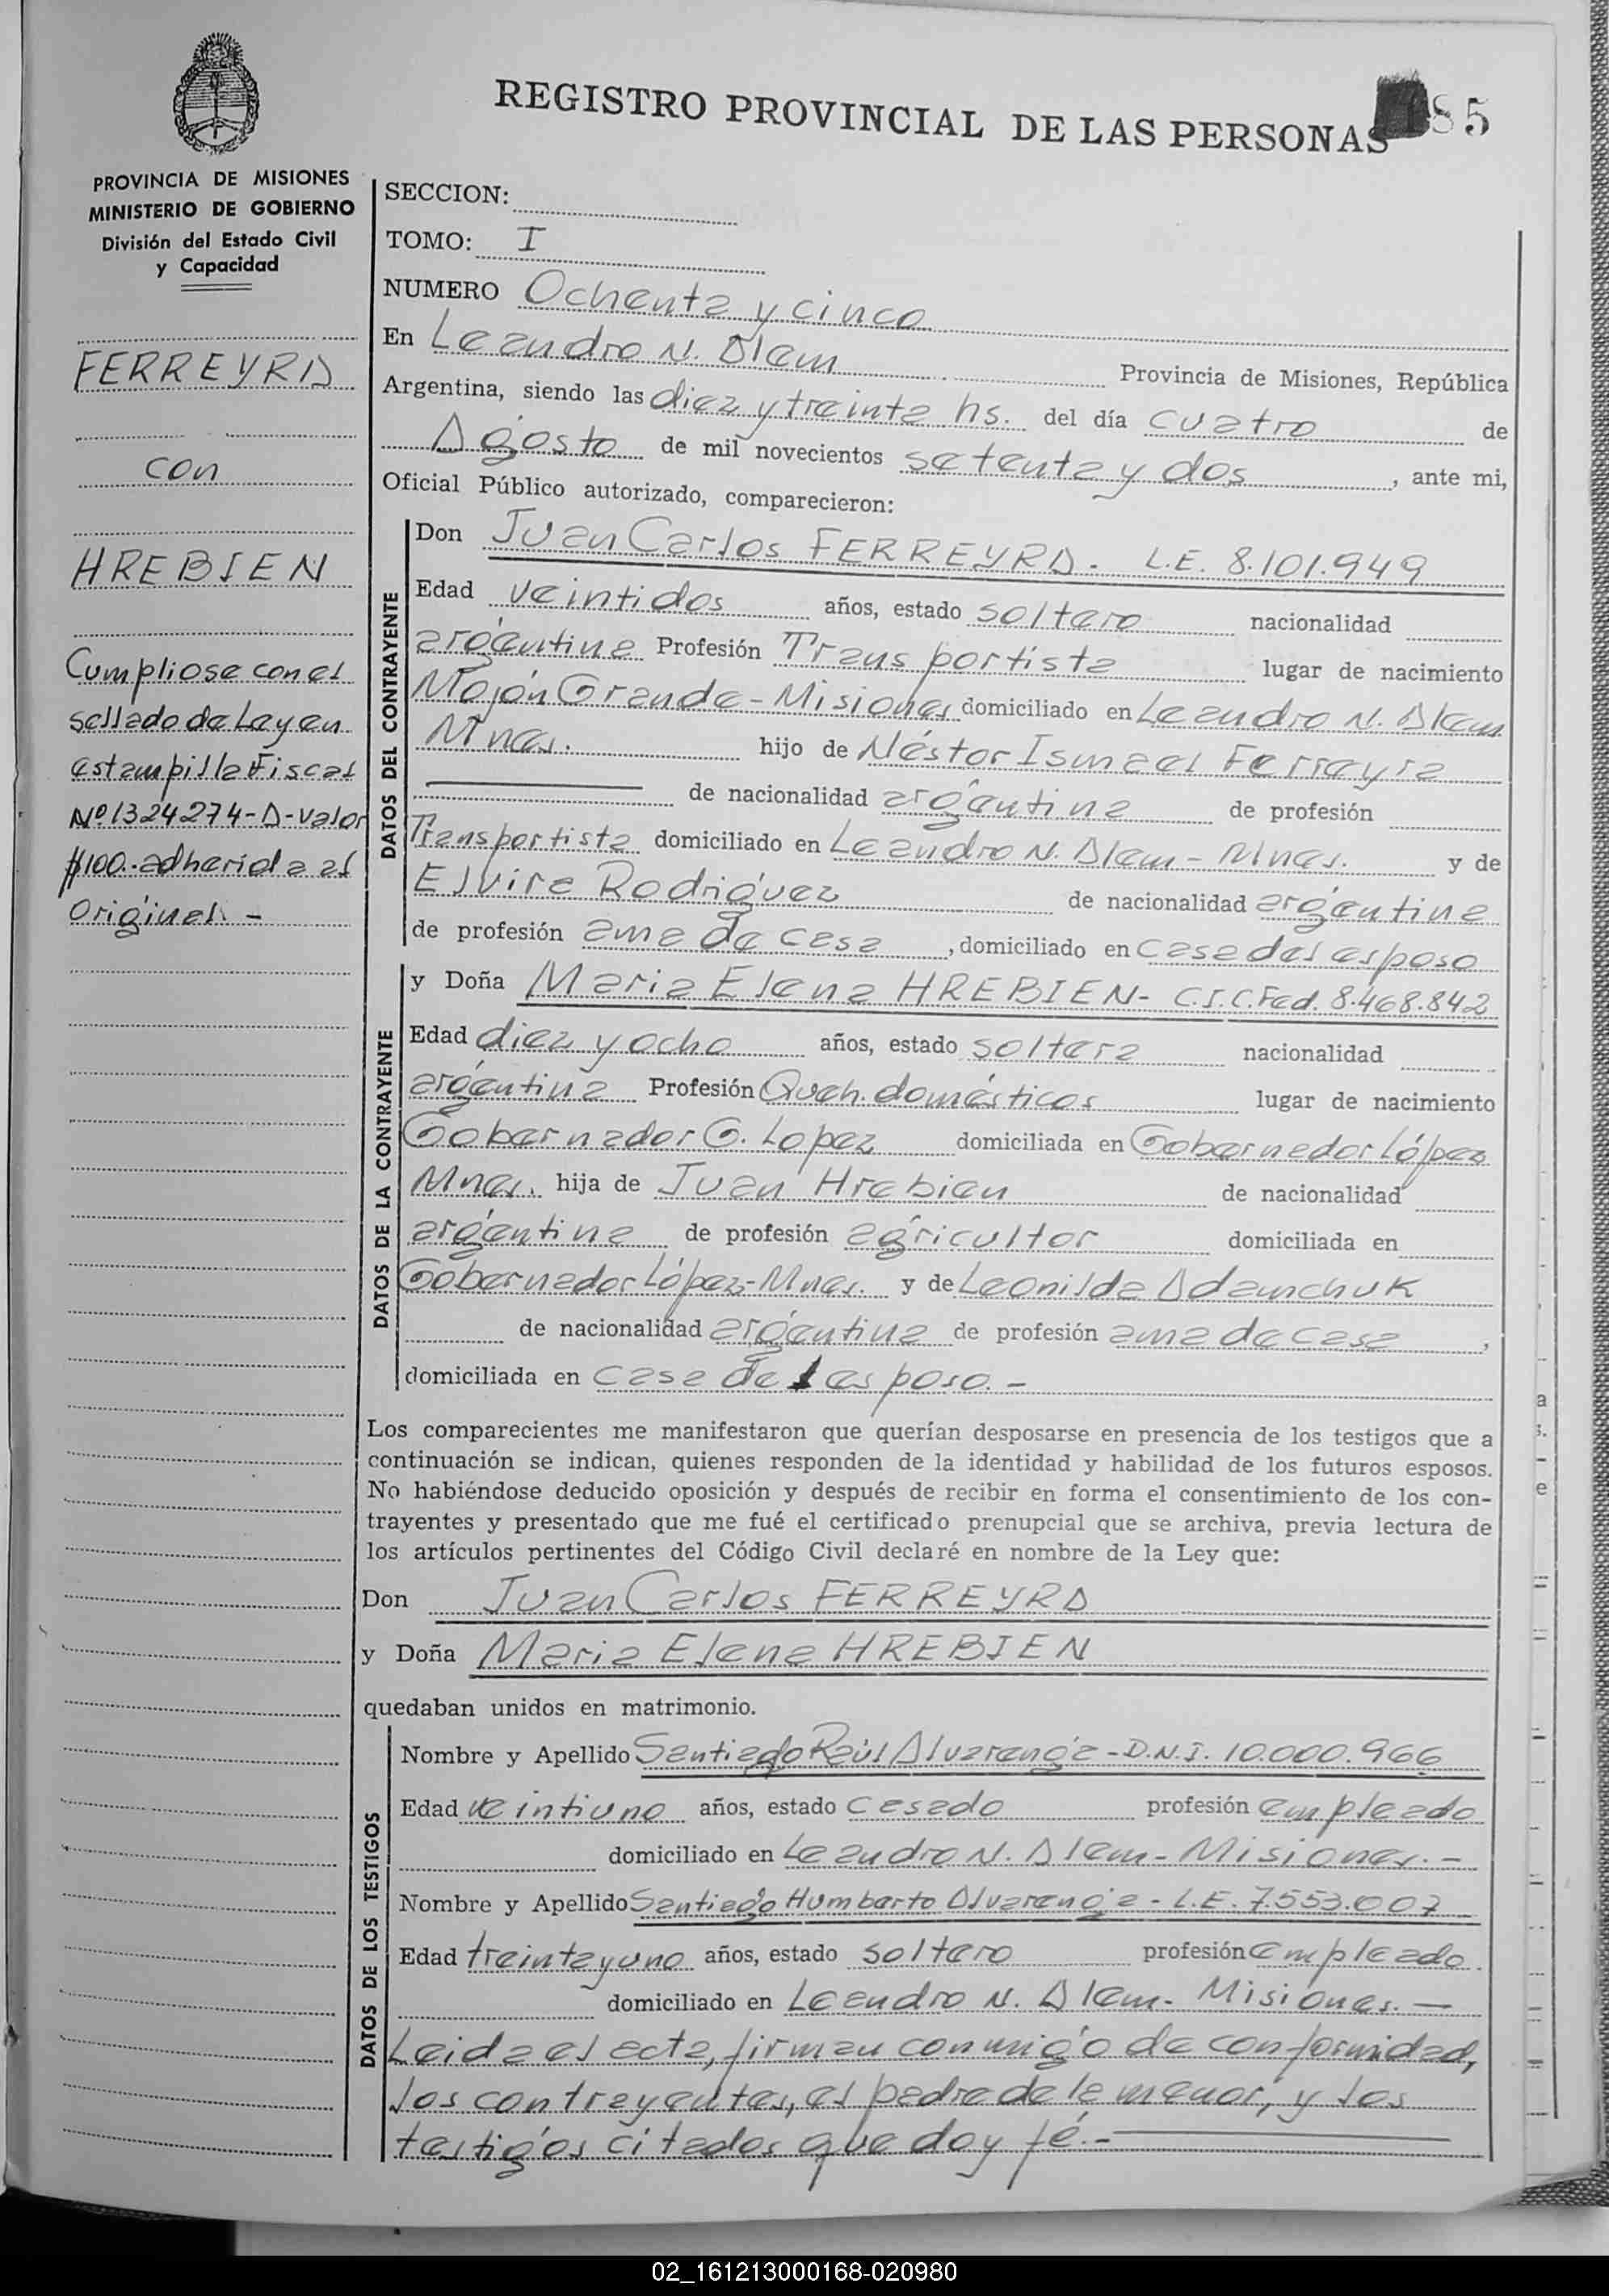 REGISTRO PROVINCIAL DE LAS PERSONAS
85
PROVINCIA DE MISIONES
MINISTERIO DE GOBIERNO
División del Estado Civil
y Capacidad
FERREYRA
con
HREBIEN
Cumpliose con el
sellado de Ley en
estampilla Fiscal
Nº 1324274-A-valor
$100.- adherida al
Original. -
SECCION:
TOMO: I
NUMERO Ochenta y cinco
En Leandro N. Alem Provincia de Misiones, República
Argentina, siendo las diez y treinta hs. del día cuatro de
Agosto de mil novecientos setenta y dos, ante mi,
Oficial Público autorizado, comparecieron:
DATOS DEL CONTRAYENTE
Don Juan Carlos FERREYRA - L.E. 8.101.949
Edad veintidos años, estado soltero nacionalidad
argentina Profesión Transportista lugar de nacimiento
Mojón Grande - Misiones domiciliado en Leandro N. Alem
Mnes. hijo de Néstor Ismael Ferreyra
de nacionalidad argentina de profesión
Transportista domiciliado en Leandro N. Alem - Mnes. y de
Elvira Rodriguez de nacionalidad argentina
de profesión ama de casa, domiciliado en casa del esposo
DATOS DE LA CONTRAYENTE
y Doña Maria Elena HREBIEN - C.I.C.Fed. 8.468.842
Edad diez y ocho años, estado soltera nacionalidad
argentina Profesión Queh. domésticos lugar de nacimiento
Gobernador G. Lopez domiciliada en Gobernador López
Mnes. hija de Juan Hrebien de nacionalidad
argentina de profesión agricultor domiciliada en
Gobernador López - Mnes. y de Leonilda Adamchuk
de nacionalidad argentina de profesión ama de casa,
domiciliada en casa del esposo. -
Los comparecientes me manifestaron que querían desposarse en presencia de los testigos que a
continuación se indican, quienes responden de la identidad y habilidad de los futuros esposos.
No habiéndose deducido oposición y después de recibir en forma el consentimiento de los con-
trayentes y presentado que me fué el certificado prenupcial que se archiva, previa lectura de
los artículos pertinentes del Código Civil declaré en nombre de la Ley que:
Don Juan Carlos FERREYRA
y Doña Maria Elena HREBIEN
quedaban unidos en matrimonio.
DATOS DE LOS TESTIGOS
Nombre y Apellido Santiago Raúl Alvarenga - D.N.I. 10.000.966
Edad veintiuno años, estado casado profesión empleado
domiciliado en Leandro N. Alem - Misiones. -
Nombre y Apellido Santiago Humberto Alvarenga - L.E. 7.553.007
Edad treinta y uno años, estado soltero profesión empleado
domiciliado en Leandro N. Alem - Misiones. -
Leida el acta, firman conmigo de conformidad,
los contrayentes, el padre de la menor, y los
testigos citados que doy fé. -
02_161213000168-020980